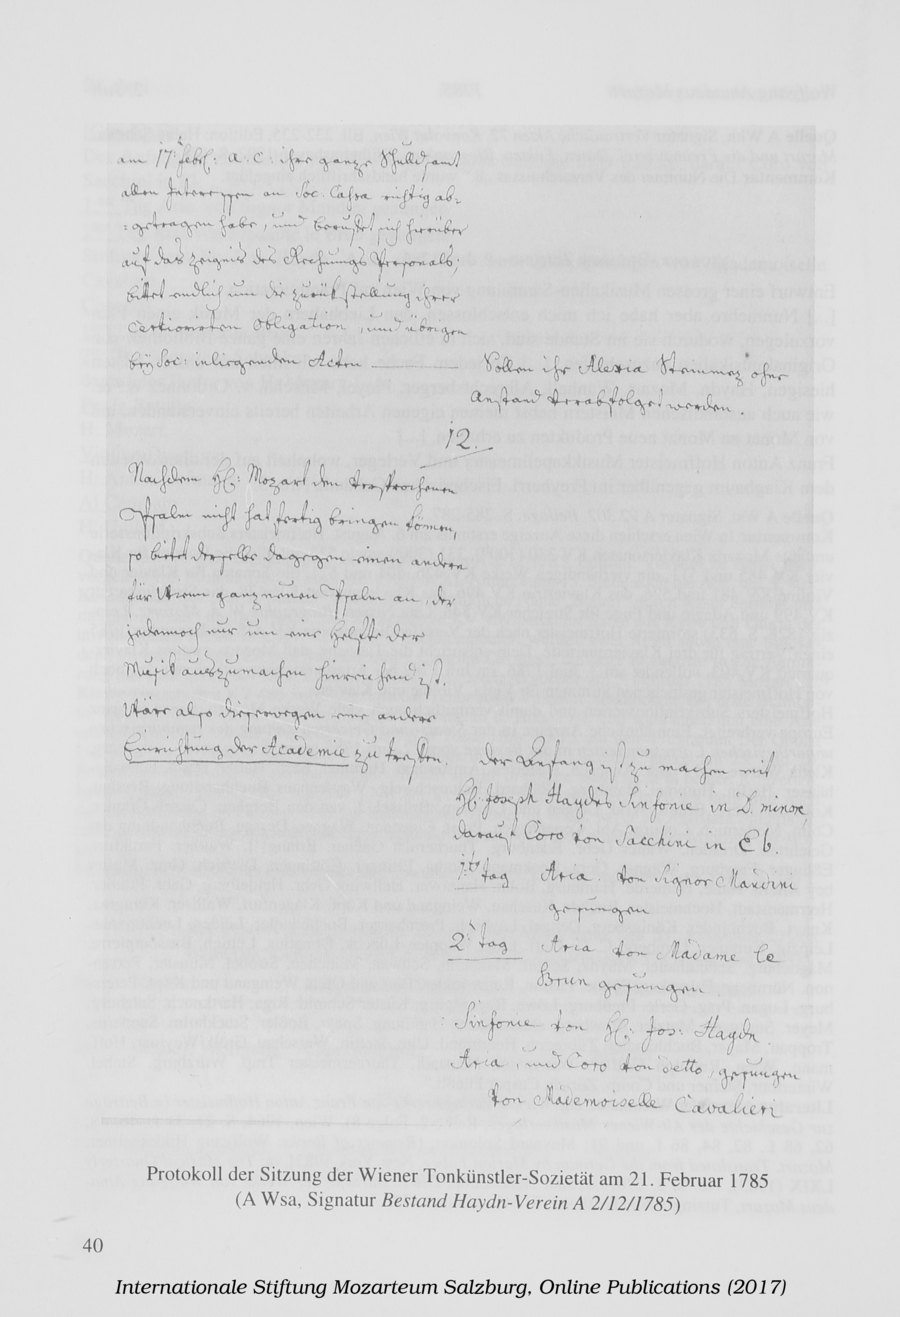 am 17t Febr: a. c: ihre ganze Schuld samt
allen Interessen an Soc: Cassa richtig ab-
=getragen habe, und berufet sich hierüber
auf das Zeignis des Rechnungs Personals;
bittet endlich um die Zurükstellung ihrer
Certiorirten Obligation, und übrigen
bey Soc: inliegenden Acten
Sollen ihr Alexia Stemmez ohne
Anstand verabfolget werden.
12.
Nachdem H: Mozart den versprochenen
Psalm nicht hat fertig bringen können,
so bietet derselbe dagegen einen andern
für Wienn ganz neuen Psalm an, der
jedennoch nur um eine Helfte der
Musik auszumachen hinreichend ist.
Wäre also dieserwegen eine andere
Einrichtung der Academie zu treffen.
Der Anfang ist zu machen mit
H: Joseph Haydn's Sinfonie in D. minor
darauf Coro von Sacchini in E b.
1tr tag Aria von Signor Mandini
gesungen
2tr tag Aria von Madame le
Brun gesungen
Sinfonie von H: Jos: Haydn
Aria, und Coro von detto, gesungen
von Mademoiselle Cavalieri
Protokoll der Sitzung der Wiener Tonkünstler-Sozietät am 21. Februar 1785
(A Wsa, Signatur Bestand Haydn-Verein A 2/12/1785)
40
Internationale Stiftung Mozarteum Salzburg, Online Publications (2017)